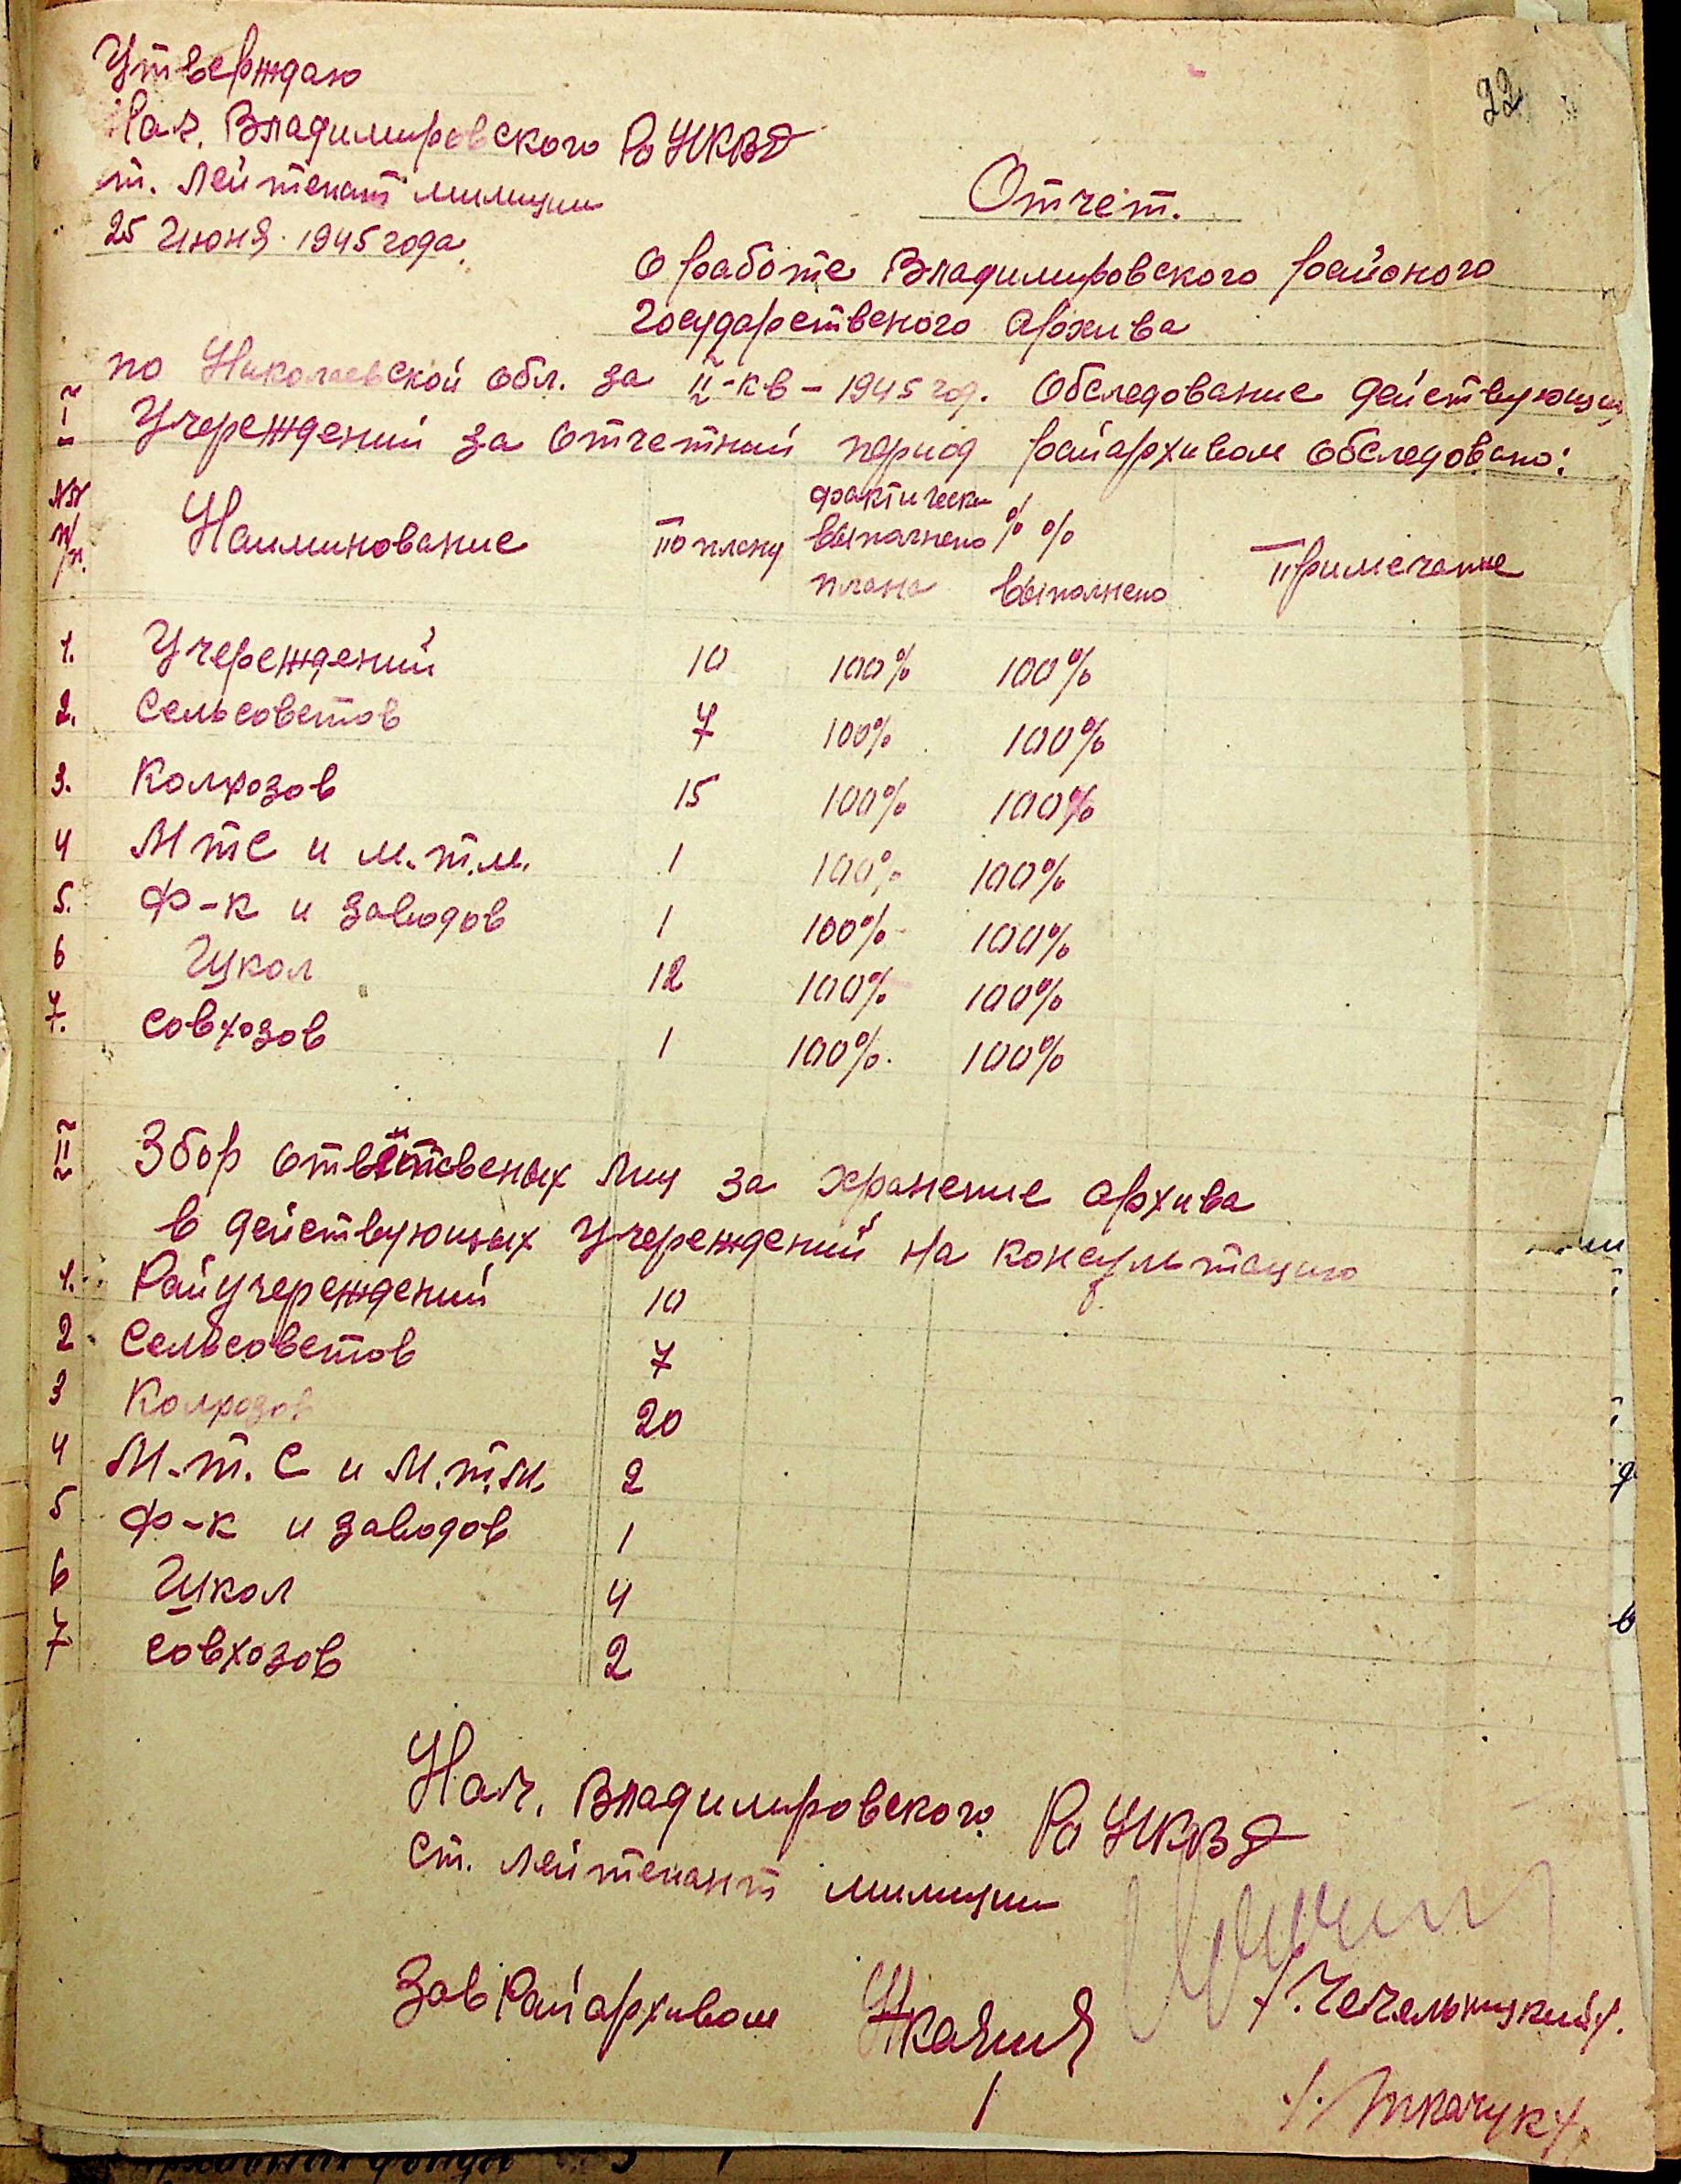 Утверждаю
Нач. Владимировского Ро НКВД
т. Лейтенант милиции
25 Июня 1945 года.
22
Отчет.
О работе Владимировского районого
Государственого Архива
по Николаевской обл. за II-кв-1945 год. Обследование действующих
I Учереждений за отчетный период райархивом обследовано:
№№ п/п. Наиминование По плану фактически выполнено плана % % выполнено Примечание
1. Учереждений 10 100% 100%
2. Сельсоветов 7 100% 100%
3. Колхозов 15 100% 100%
4 МТС и м.т.м. 1 100% 100%
5. Ф-к и заводов 1 100% 100%
6 Школ 12 100% 100%
7. Совхозов 1 100%. 100%
II Збор ответственых лиц за хранение архива
в действующых Учереждений на консультацию
1. Райучереждений 10
2 Сельсоветов 7
3 Колхозов 20
4 М.т.С и М.т.м. 2
5 Ф-к и заводов 1
6 Школ 4
7 Совхозов 2
Нач. Владимировского Ро НКВД
Ст. Лейтенант милиции
/.Чечельницкий/.
Зав Райархивом
/.Ткачук/.